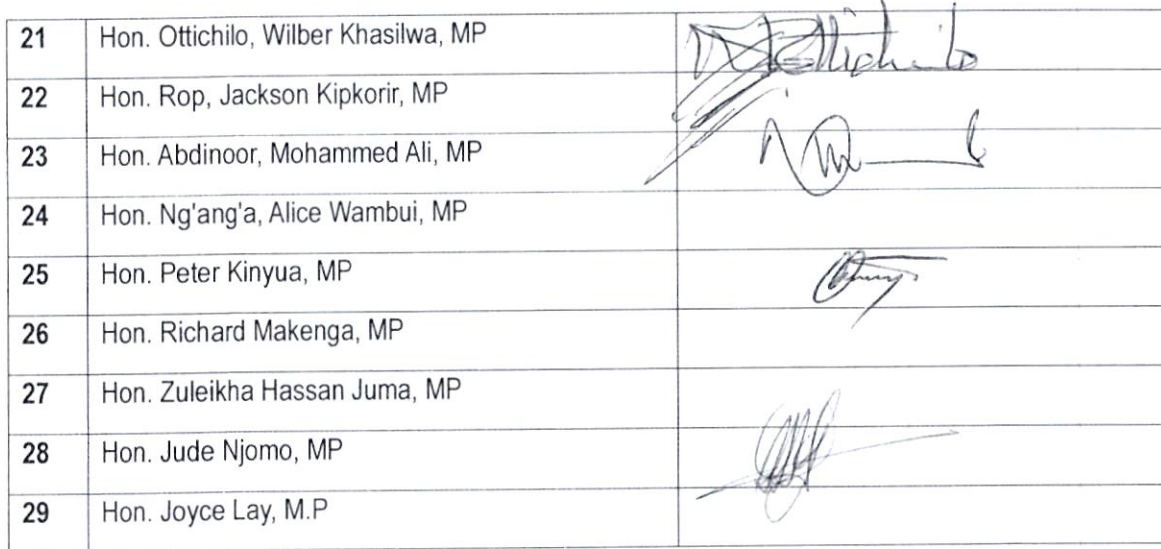 21 Hon. Ottichilo, Wilber Khasilwa, MP Ottichilo
22 Hon. Rop, Jackson Kipkorir, MP
23 Hon. Abdinoor, Mohammed Ali, MP
24 Hon. Ng'ang'a, Alice Wambui, MP
25 Hon. Peter Kinyua, MP
26 Hon. Richard Makenga, MP
27 Hon. Zuleikha Hassan Juma, MP
28 Hon. Jude Njomo, MP
29 Hon. Joyce Lay, M.P